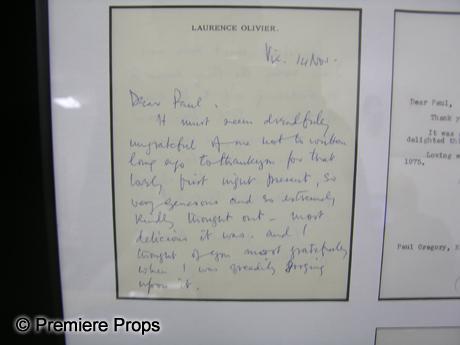 LAURENCE OLIVIER.
Vic. 14 Nov.
Dear Paul.
It must seem dreadfully
ungrateful of me not to written
long ago to thankyou for that
lovely first night present, so
very generous and so extremely
kindly thought out - most
delicious it was. and I
thought of you most gratefully
when I was greedily gorging
upon it.
Dear Paul,
Thank y
It was
delighted thi
Loving w
1975.
Paul Gregory, E
© Premiere Props